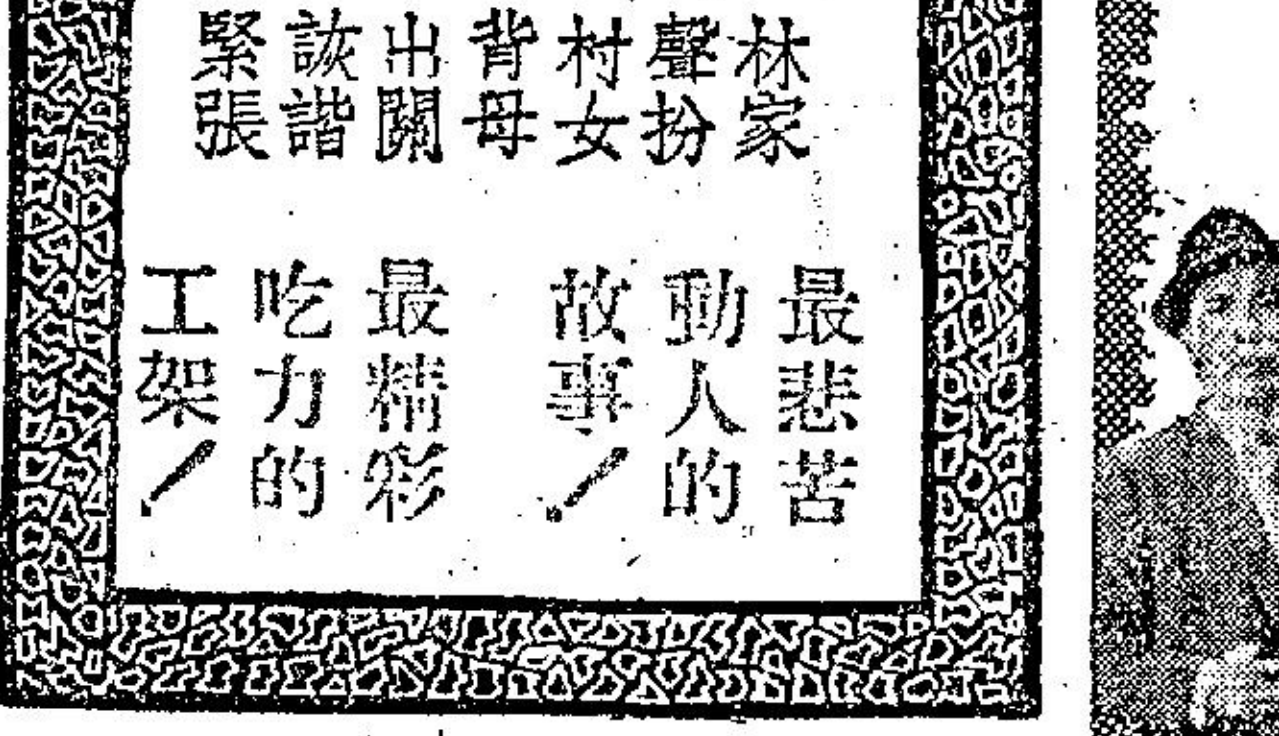 林家
聲扮
村女
背母
出關
詼諧
緊張
最悲苦
動人的
故事！
最精彩
吃力的
工架！